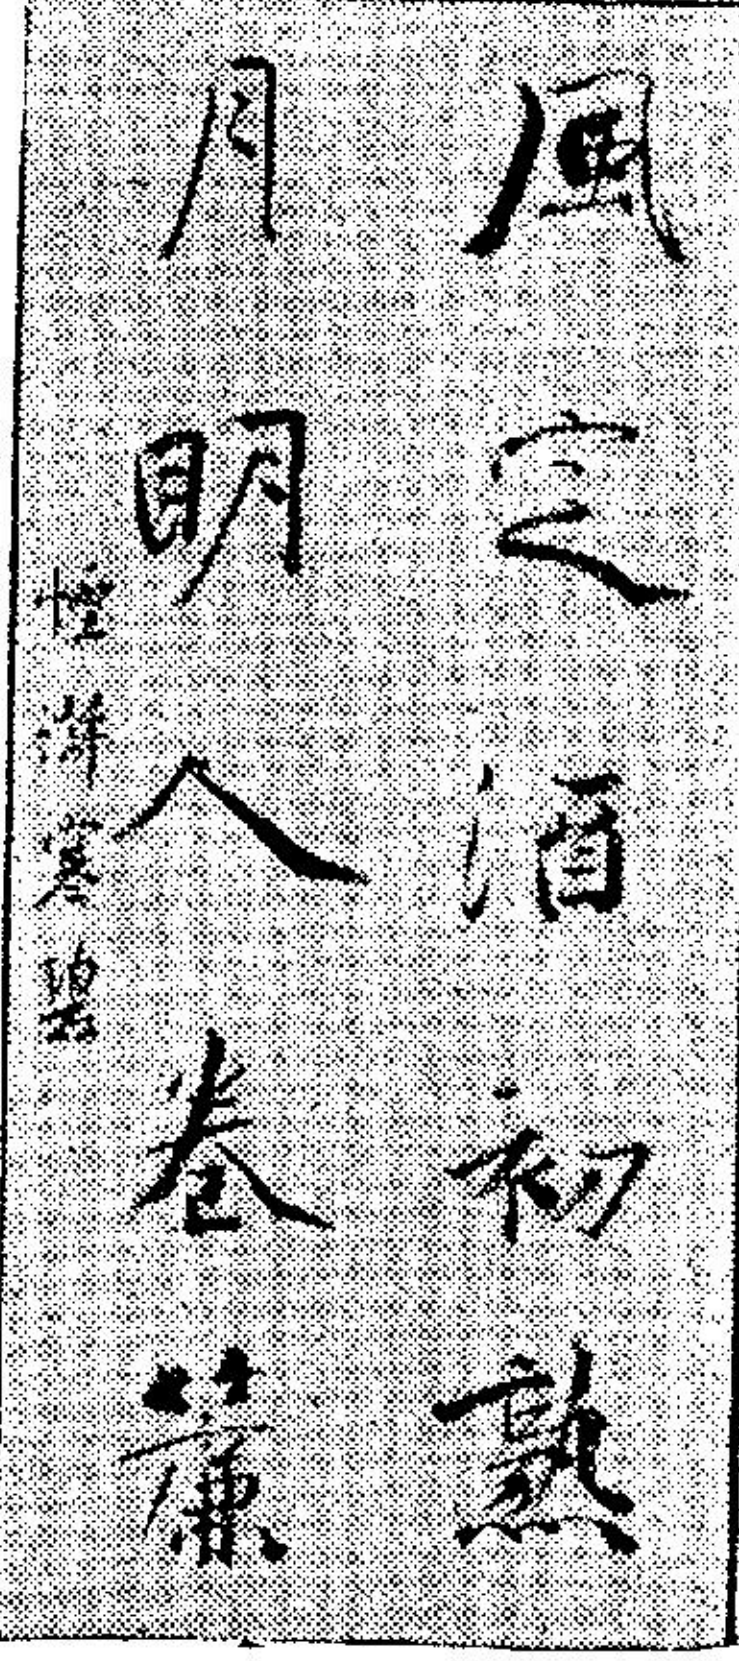 風定酒初熟
月明人卷簾
寒碧